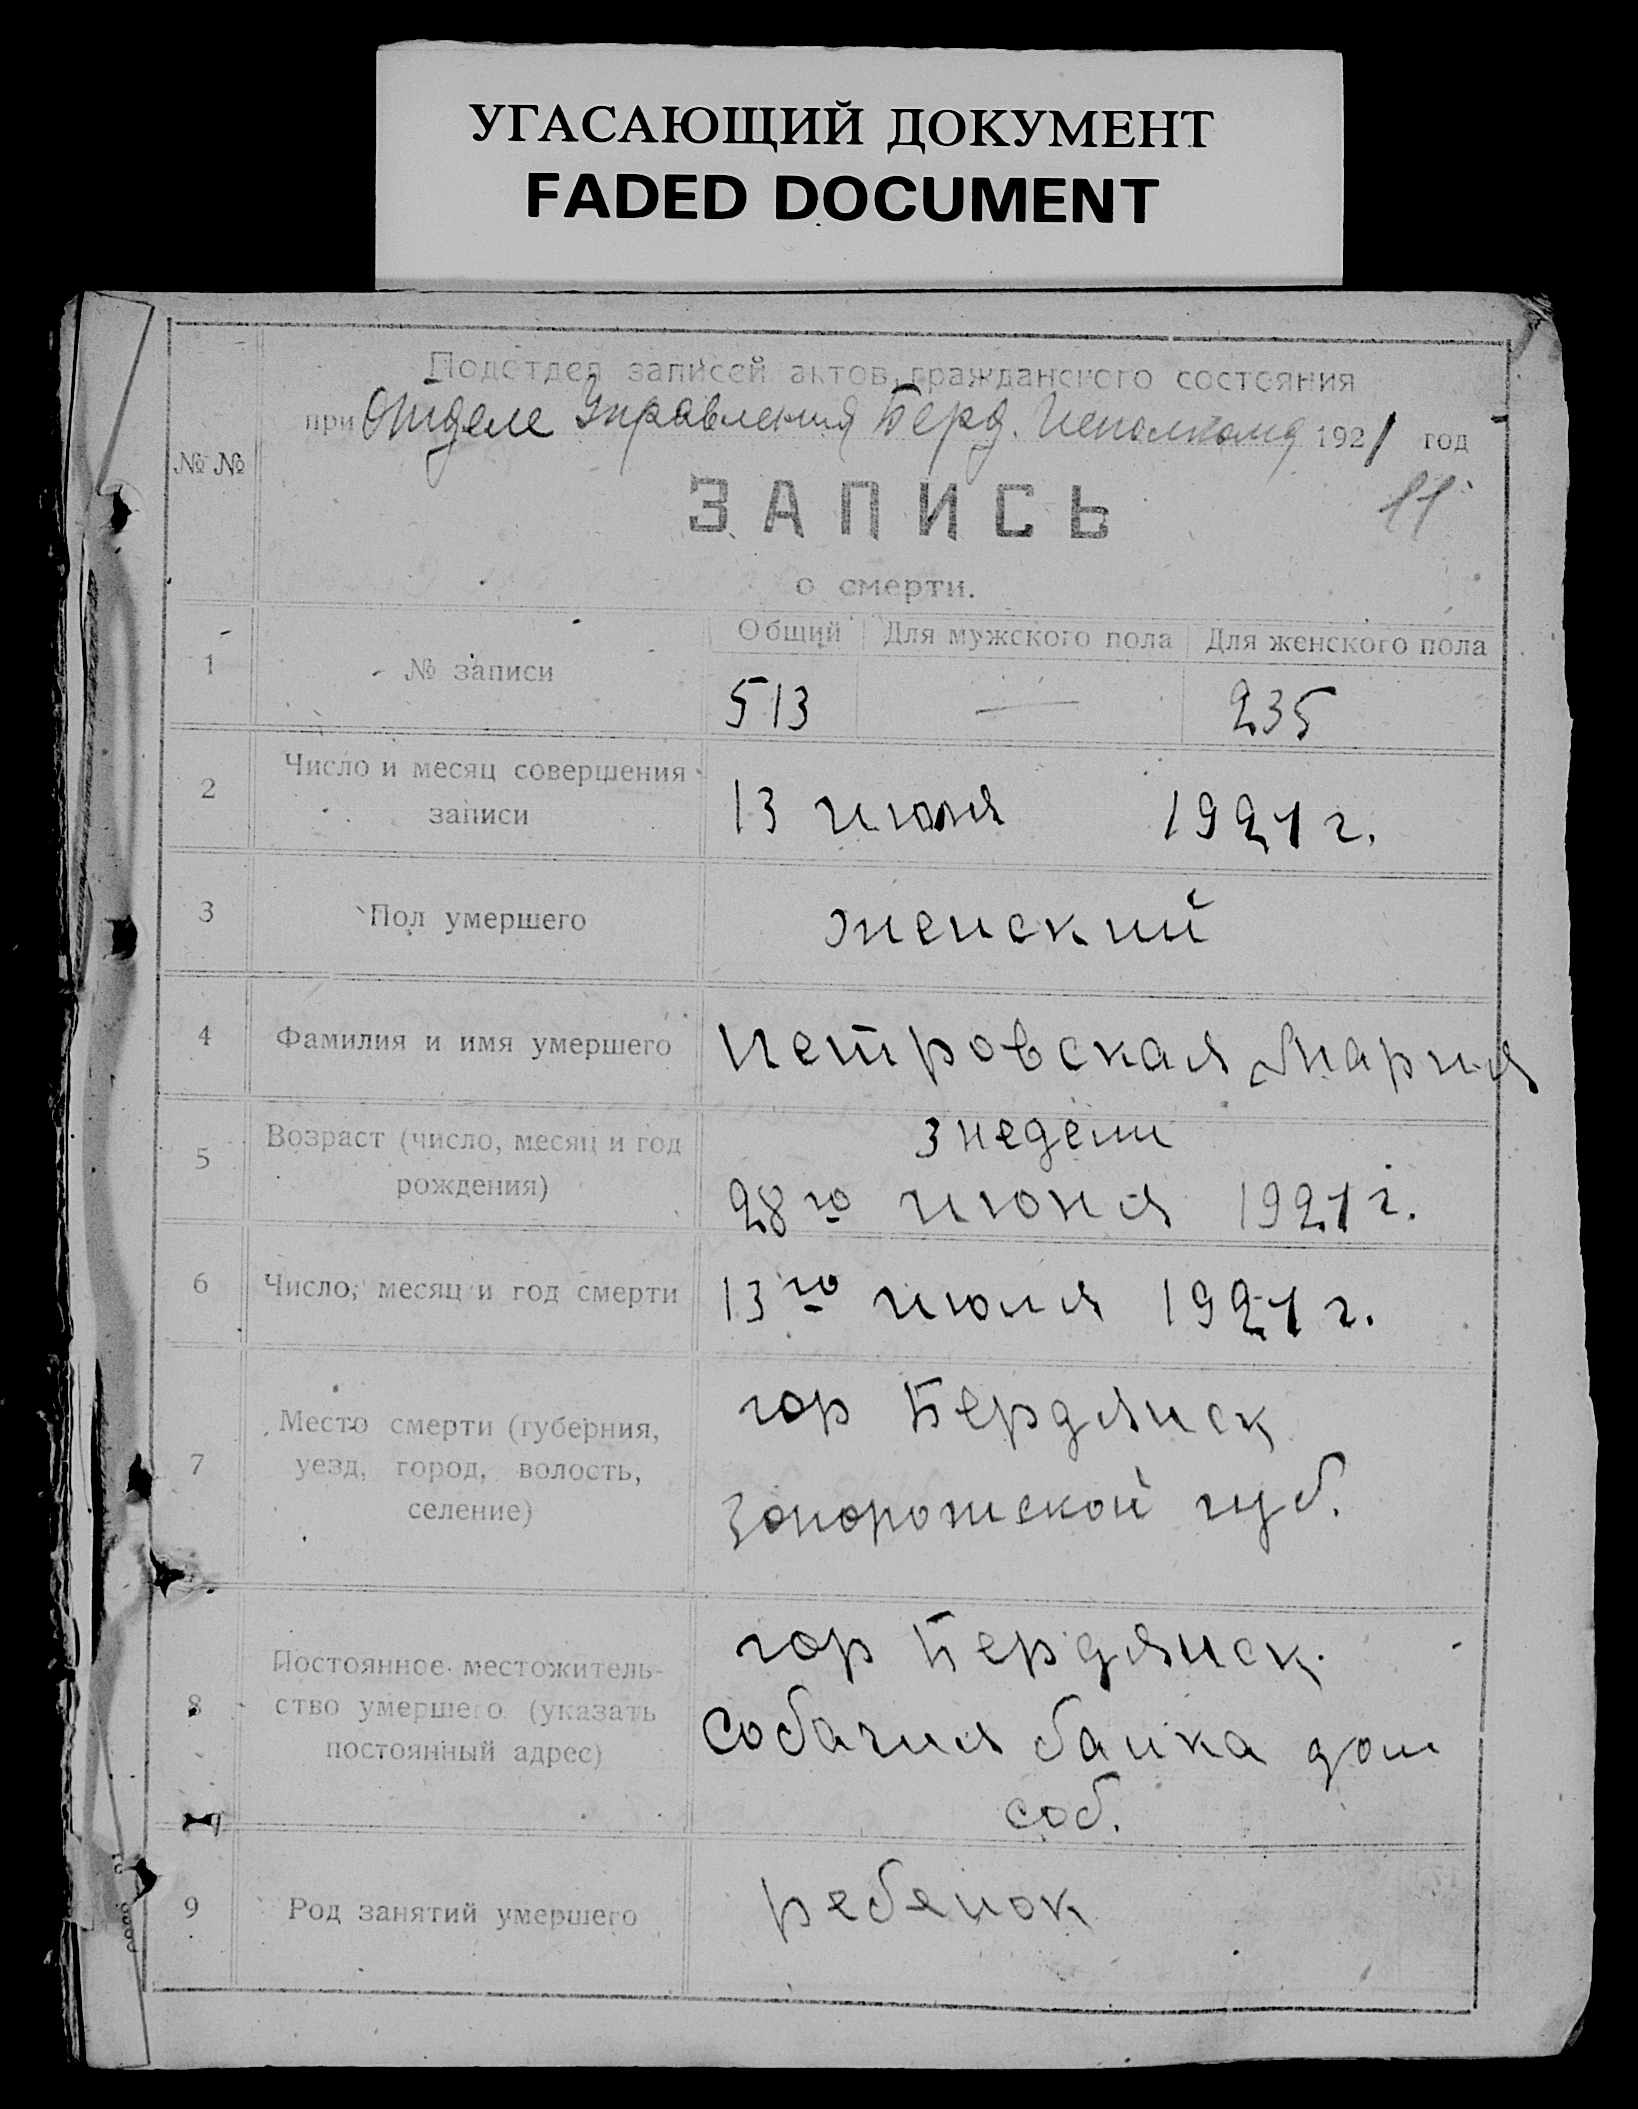 УГАСАЮЩИЙ ДОКУМЕНТ
FADED DOCUMENT
Подотдел записей актов гражданского состояния
при Отделе Управления Берд. Исполкома 1921 год
№ №
11
ЗАПИСЬ
о смерти.
Общий Для мужского пола Для женского пола
1 № записи 513 — 235
2 Число и месяц совершения
записи 13 июля 1921 г.
3 Пол умершего женский
4 Фамилия и имя умершего Петровская Мария
3 недели
5 Возраст (число, месяц и год
рождения) 28го июня 1921 г.
6 Число, месяц и год смерти 13го июля 1921 г.
7 Место смерти (губерния,
уезд, город, волость,
селение)
гор Бердянск
Запорожской губ.
8 Постоянное местожитель-
ство умершего (указать
постоянный адрес)
гор Бердянск
Собачия балка дом
соб.
9 Род занятий умершего ребенок